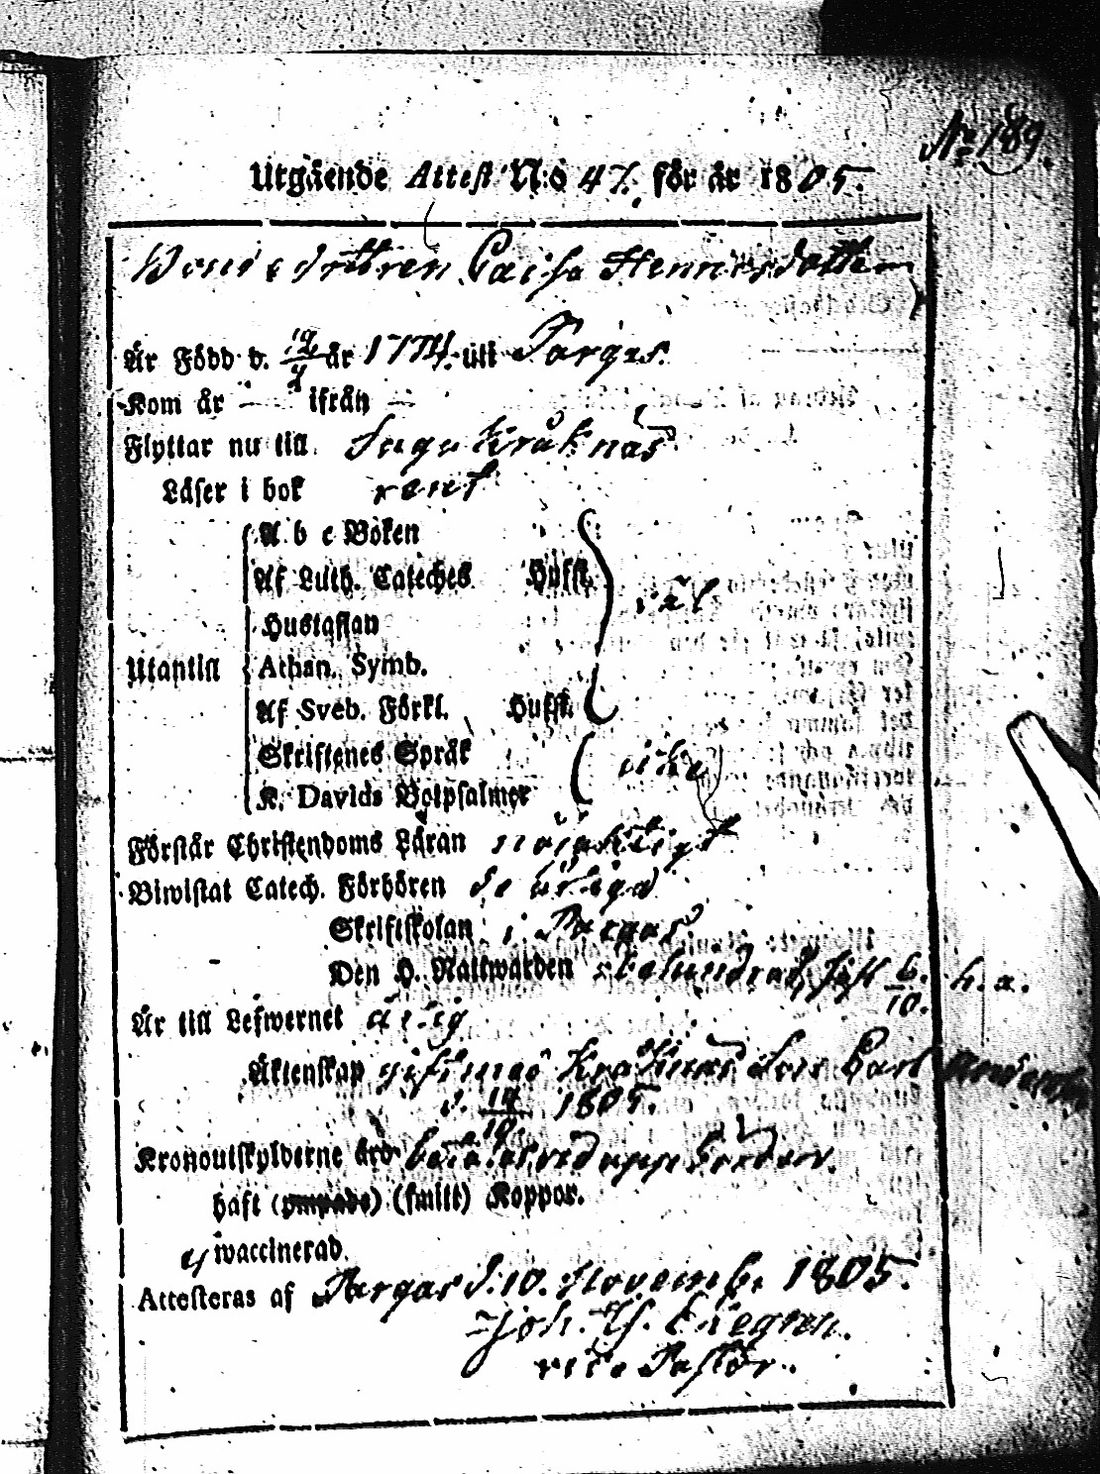 No 189.
Utgående Attest N:o 47. för år 1805.
Bondedottren Caisa Henricsdotter
Är Född d. 19/4 år 1774. uti Pargas.
Kom år — ifrån —
Flyttar nu till Kråknäs
Läser i bok rent
A b c Boken
Af Luth. Cateches Hufst. väl
Hustaflan
Utantill Athan. Symb.
Af Sveb. Förkl. Hufst.
Skriftenes Språk icke
K. Davids Botpsalmer
Förstår Christendoms Läran nöjaktigt
Biwistat Catech. Förhören
Skriftskolan i Pargas.
Den H. Nattwarden sist 6/10. h. a.
Är till Lefwernet ärlig
Äktenskap gift med Kråknäs Carl
d. 19/10. 1805.
Kronoutskylderne äro betalte
haft (ympade) (smitt) Koppor.
ej waccinerad
Attesteras af Pargas d. 10. Novemb. 1805.
Joh.
vice Pastor.